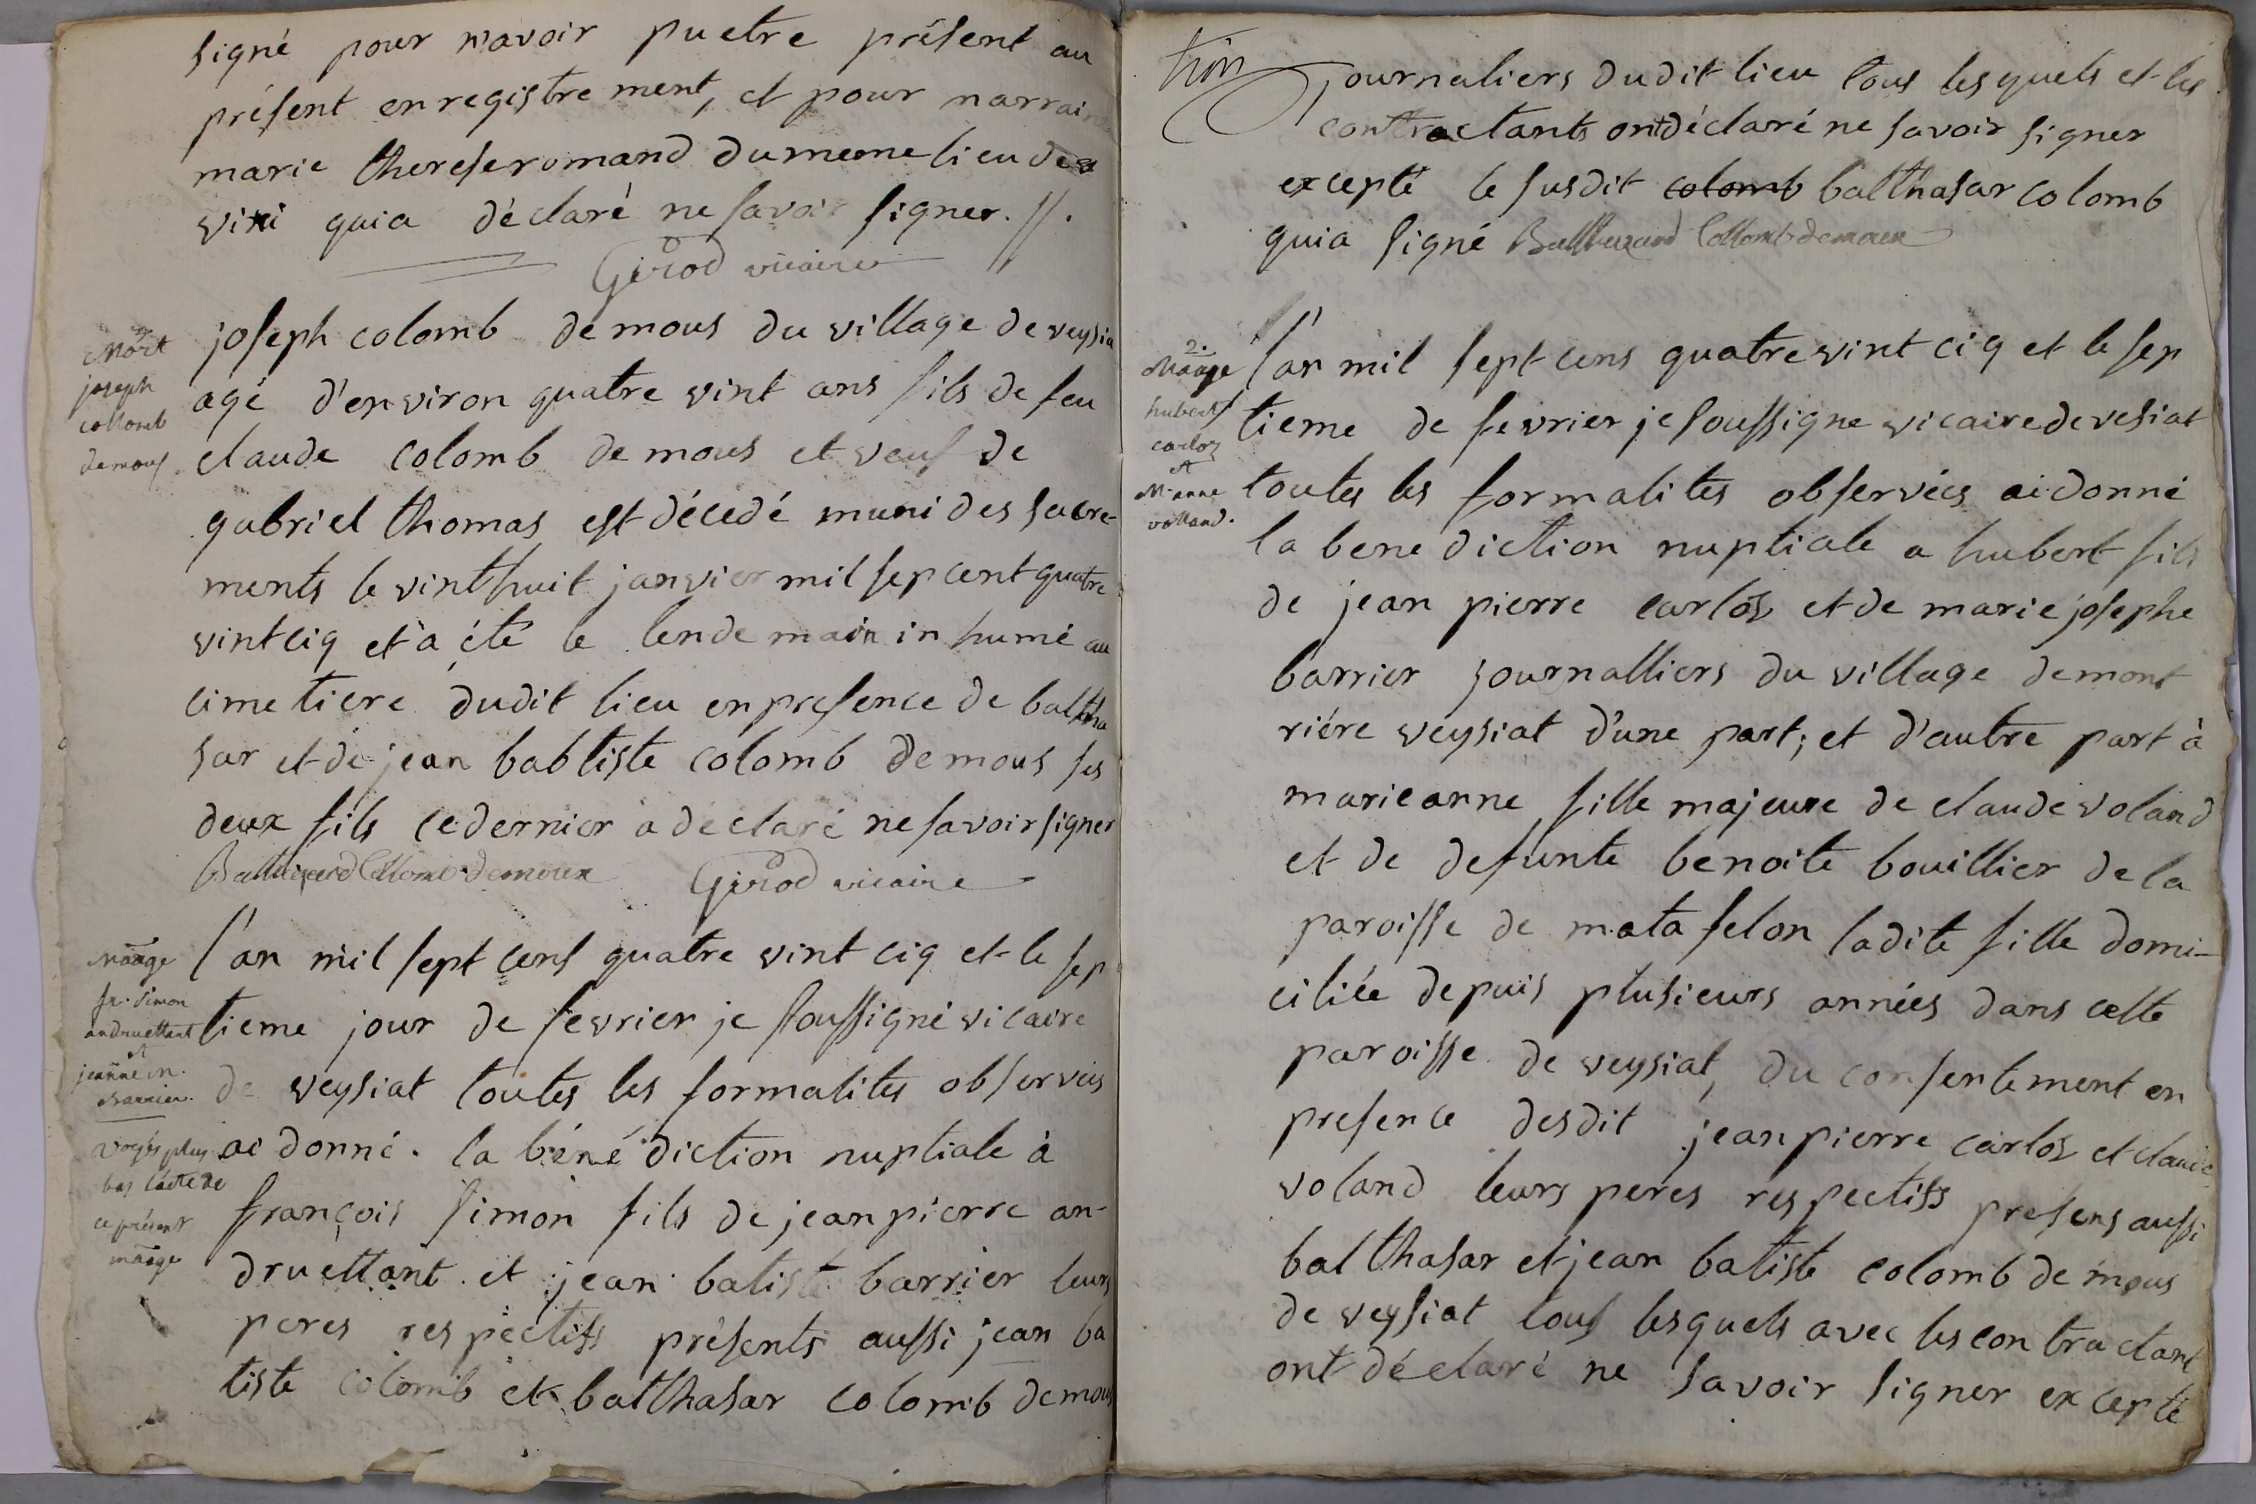 signé pour n'avoir pu etre présent au
présent enregistrement, et pour marraine
marie therese romand du meme lieu de
qui a déclaré ne savoir signer. //.
Girod vicaire
Mort
joseph
collomb
demous
joseph colomb demous du village de veysia
agé d'environ quatre vint ans fils de feu
claude colomb demous et veuf de
gabriel thomas est décedé muni des sacre-
ments le vint huit janvier mil sep cent quatre
vint ciq et a été le lendemain inhumé au
cimetiere dudit lieu en presence de baltha
sar et de jean babtiste colomb demous ses
deux fils ce dernier a déclaré ne savoir signer
Balthazard Collomb demoux Girod vicaire
Maage
fr. Simon
andruettant
et
jeanne m.
Barrier.
voyés plus
bas l'acte de
ce présent
maage
l'an mil sept cens quatre vint ciq et le sep
tieme jour de fevrier je soussigné vicaire
de veysiat toutes les formalites observées
ai donné. la bénédiction nuptiale à
françois simon fils de jean pierre an-
druettant et jean batiste barrier leurs
peres respectifs présents aussi jean ba
tiste colomb et balthasar colomb demous
tion
journaliers dudit lieu tous lesquels et les
contractants ont déclaré ne savoir signer
excepté le susdit colomb balthasar colomb
qui a signé Balthazard Collomb demoux
2.
Maage
hubert
carloz
et
M. anne
volland.
l'an mil sept cens quatre vint ciq et le sep
tieme de fevrier je soussigne vicaire de vesiat
toutes les formalites observées ai donné
la benediction nuptiale a hubert fils
de jean pierre carloz et de marie josephe
barrier journalliers du village de mont
riére veysiat d'une part; et d'autre part à
marie anne fille majeure de claude voland
et de defunte benoite bouillier de la
paroisse de matafelon ladite fille domi-
ciliée depuis plusieurs années dans cette
paroisse de veysiat, du consentement en
presence desdit jean pierre carloz et claude
voland leurs peres respectifs presens aussi
balthasar et jean batiste colomb demous
de veysiat tous lesquels avec les contractant
ont déclaré ne savoir signer excepté